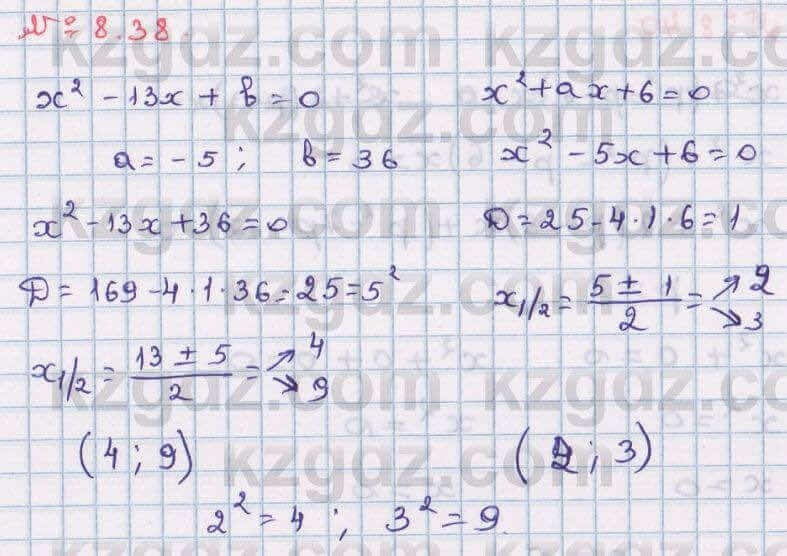 № 8.38.
x² - 13x + b = 0
a = -5; b = 36
x² - 13x + 36 = 0
D = 169 - 4·1·36 = 25 = 5²
x₁/₂ = (13 ± 5)/2 = ↗ 4 ↘ 9
(4; 9)
x² + ax + 6 = 0
x² - 5x + 6 = 0
D = 25 - 4·1·6 = 1
x₁/₂ = (5 ± 1)/2 = ↗ 2 ↘ 3
(2; 3)
2² = 4; 3² = 9.
kzgdz.com
kzgdz.com
kzgdz.com
kzgdz.com
kzgdz.com